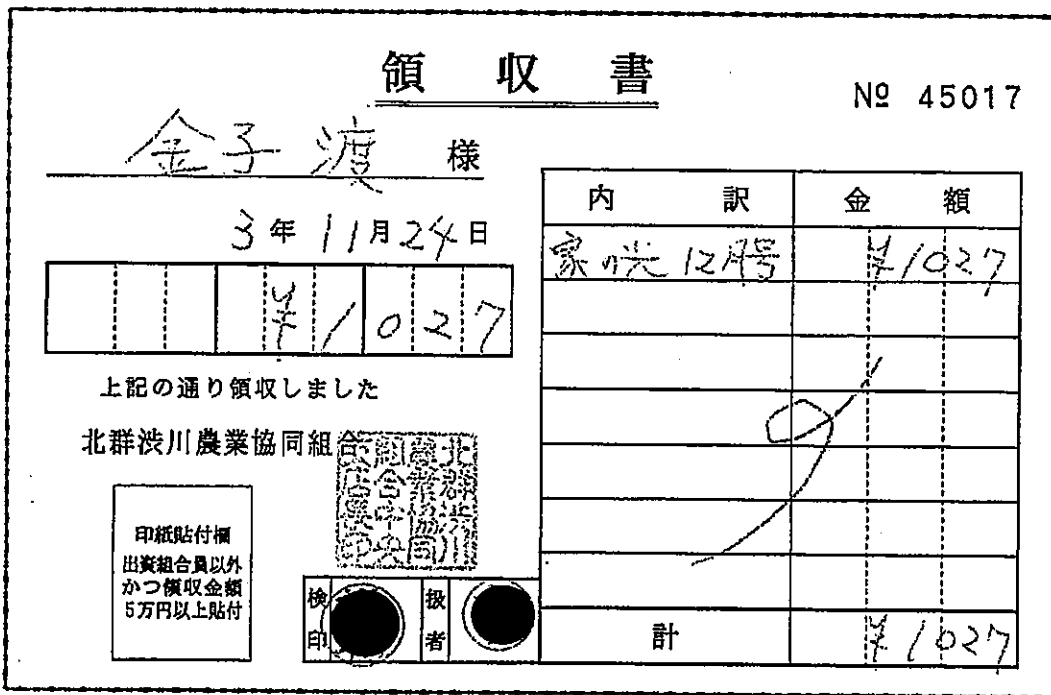 領収書
№ 45017
金子渡 様
3年11月24日
¥1027
上記の通り領収しました
北群渋川農業協同組合
印紙貼付欄
出資組合員以外
かつ領収金額
5万円以上貼付
検印
扱者
内訳 金額
家の光12月号 ¥1027
計 ¥1027